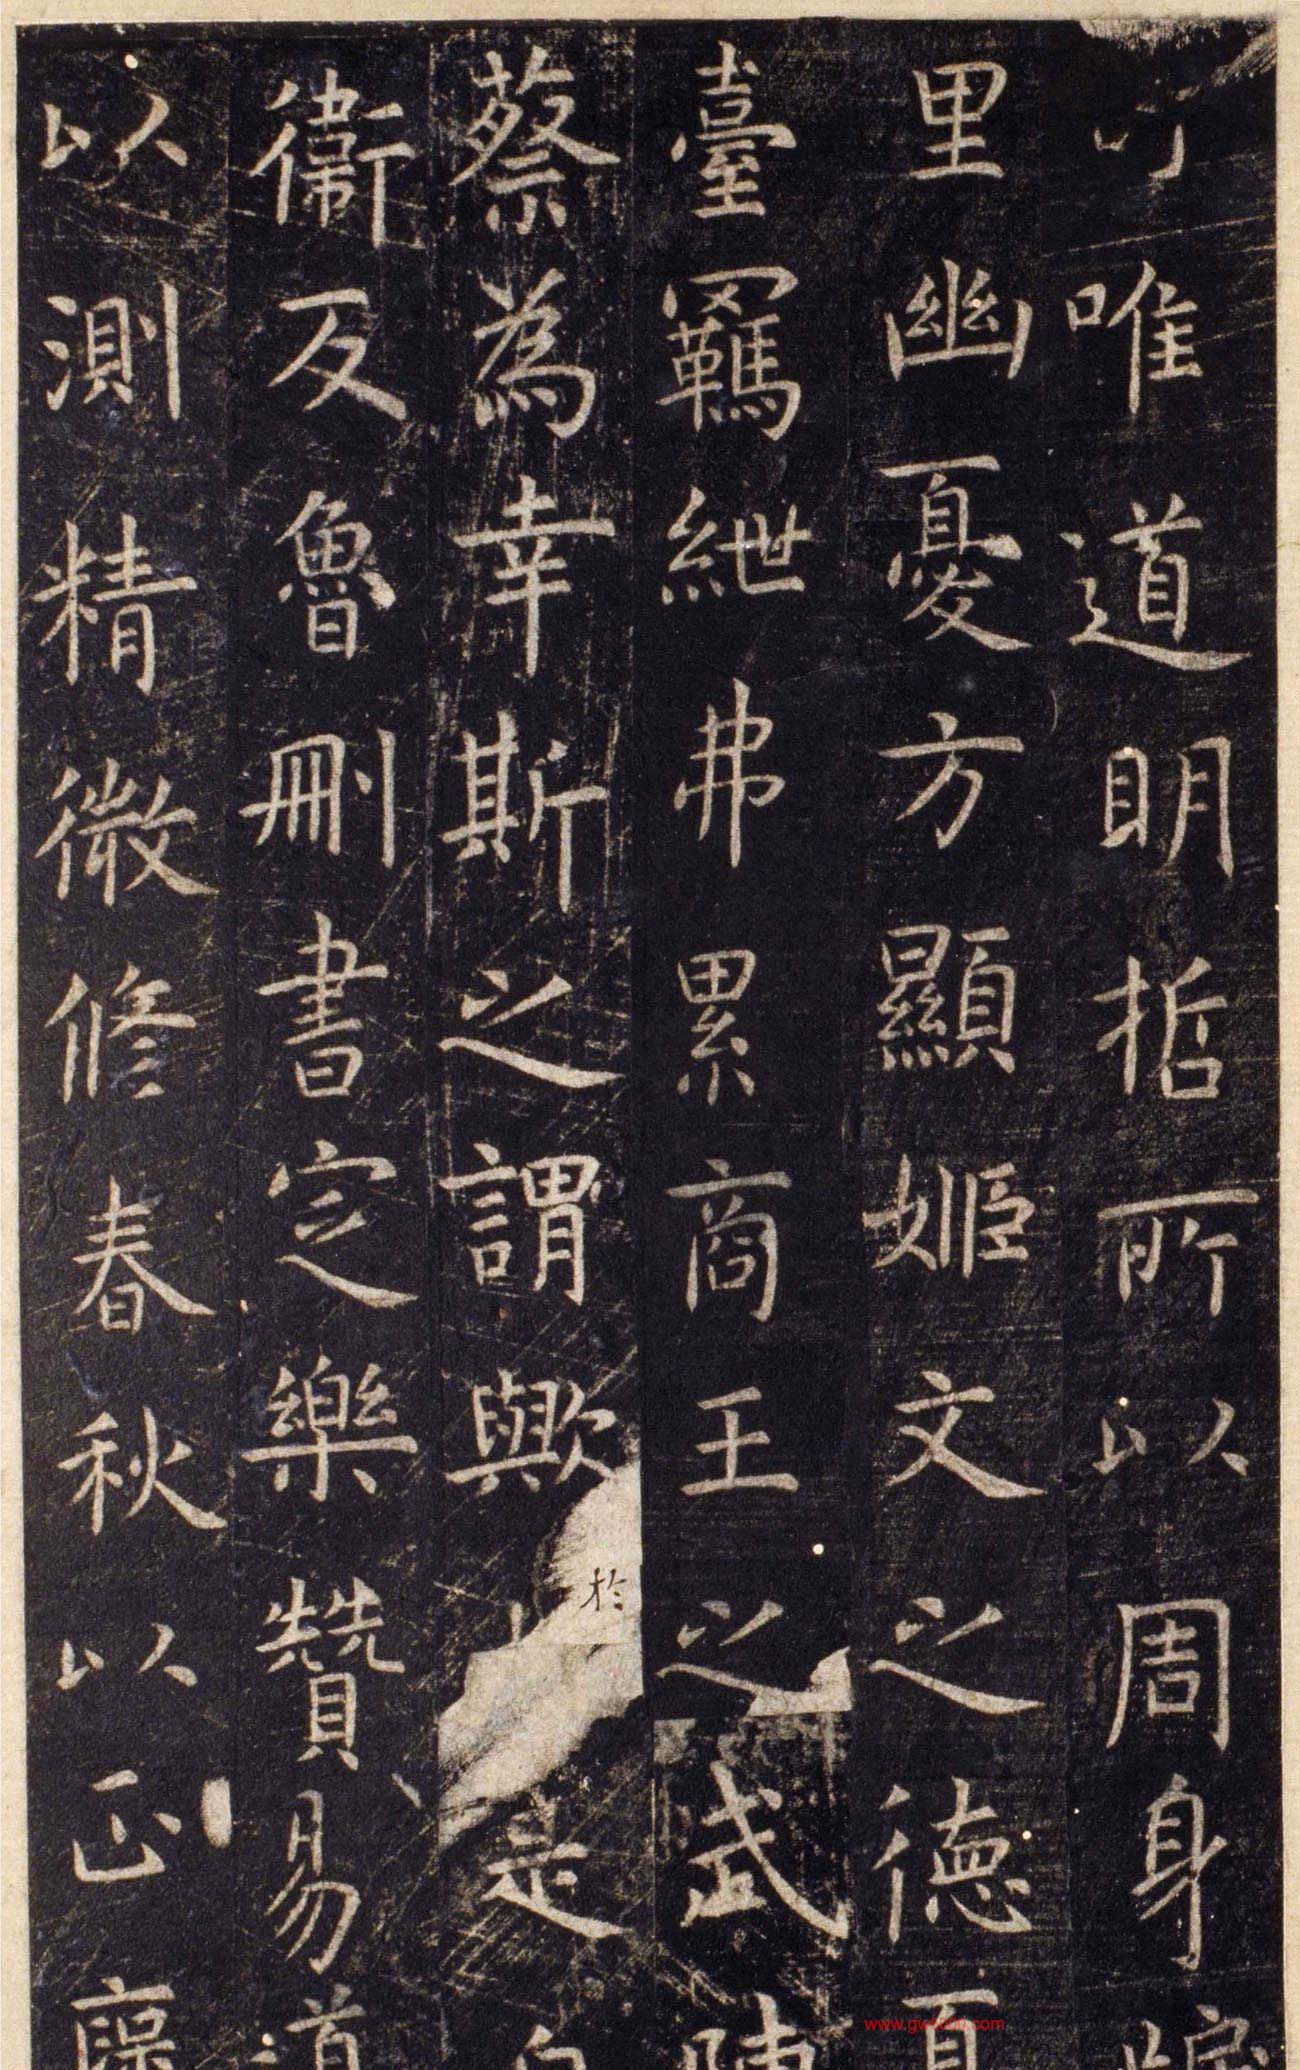 唯道明哲所以周身
里幽憂方顯姬文之德夏
臺羈紲弗累商王之武陳
蔡為幸斯之謂歟於是自
衛反魯刪書定樂贊易道
以測精微修春秋以正褒
www.gw5000.com